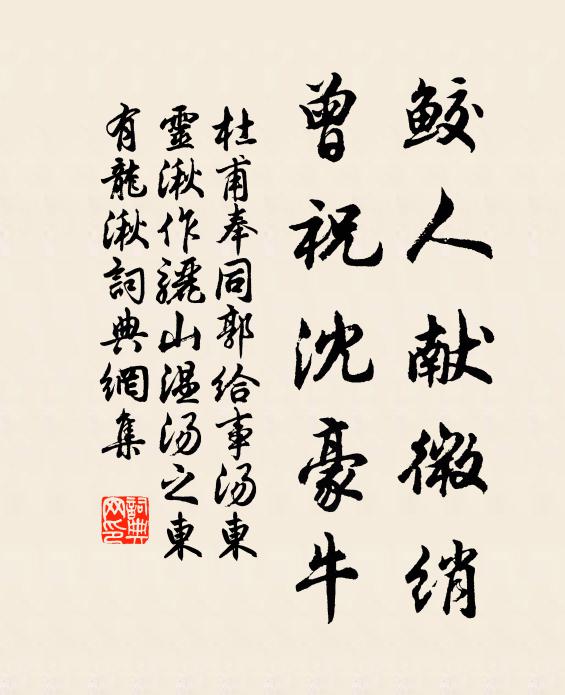 鲛人献微绡
曾祝沈豪牛
杜甫奉同郭给事汤东
靈湫作骊山温汤之東
有龍湫詞典網集
詞典
网印